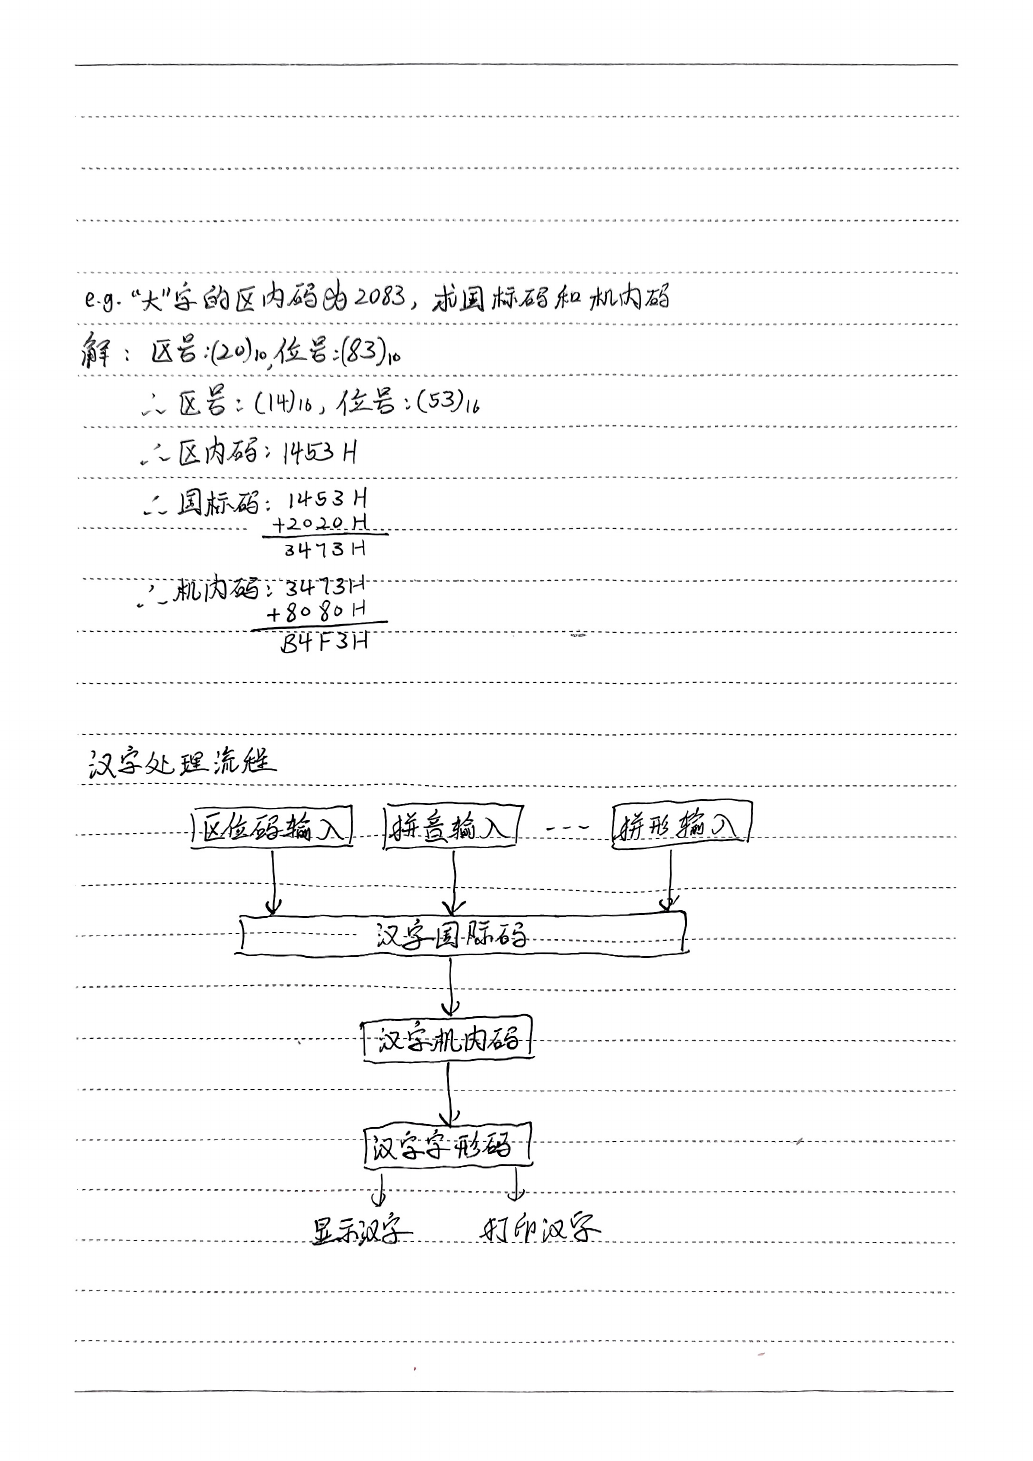 e.g. "大"字的区内码为2083, 求国标码和机内码
解: 区号:(20)10, 位号:(83)10
∴ 区号: (14)16, 位号: (53)16
∴ 区内码: 1453H
∴ 国标码: 1453H
+2020H
3473H
∴ 机内码: 3473H
+8080H
B4F3H
汉字处理流程
区位码输入 拼音输入 --- 拼形输入
汉字国际码
汉字机内码
汉字字形码
显示汉字 打印汉字